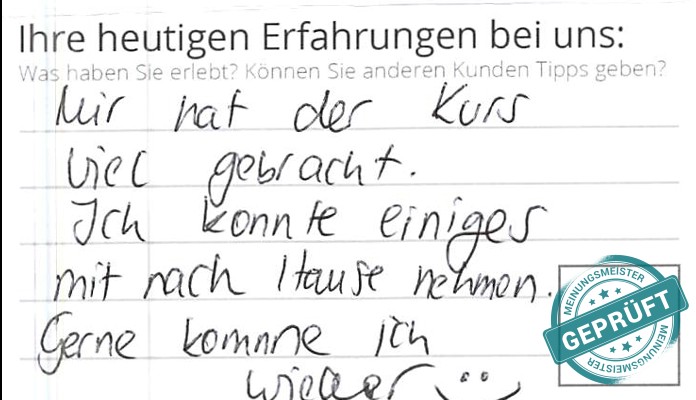 Ihre heutigen Erfahrungen bei uns:
Was haben Sie erlebt? Können Sie anderen Kunden Tipps geben?
Mir hat der Kurs
viel gebracht.
Ich konnte einiges
mit nach Hause nehmen.
Gerne komme ich
wieder
MEINUNGSMEISTER
GEPRÜFT
MEINUNGSMEISTER